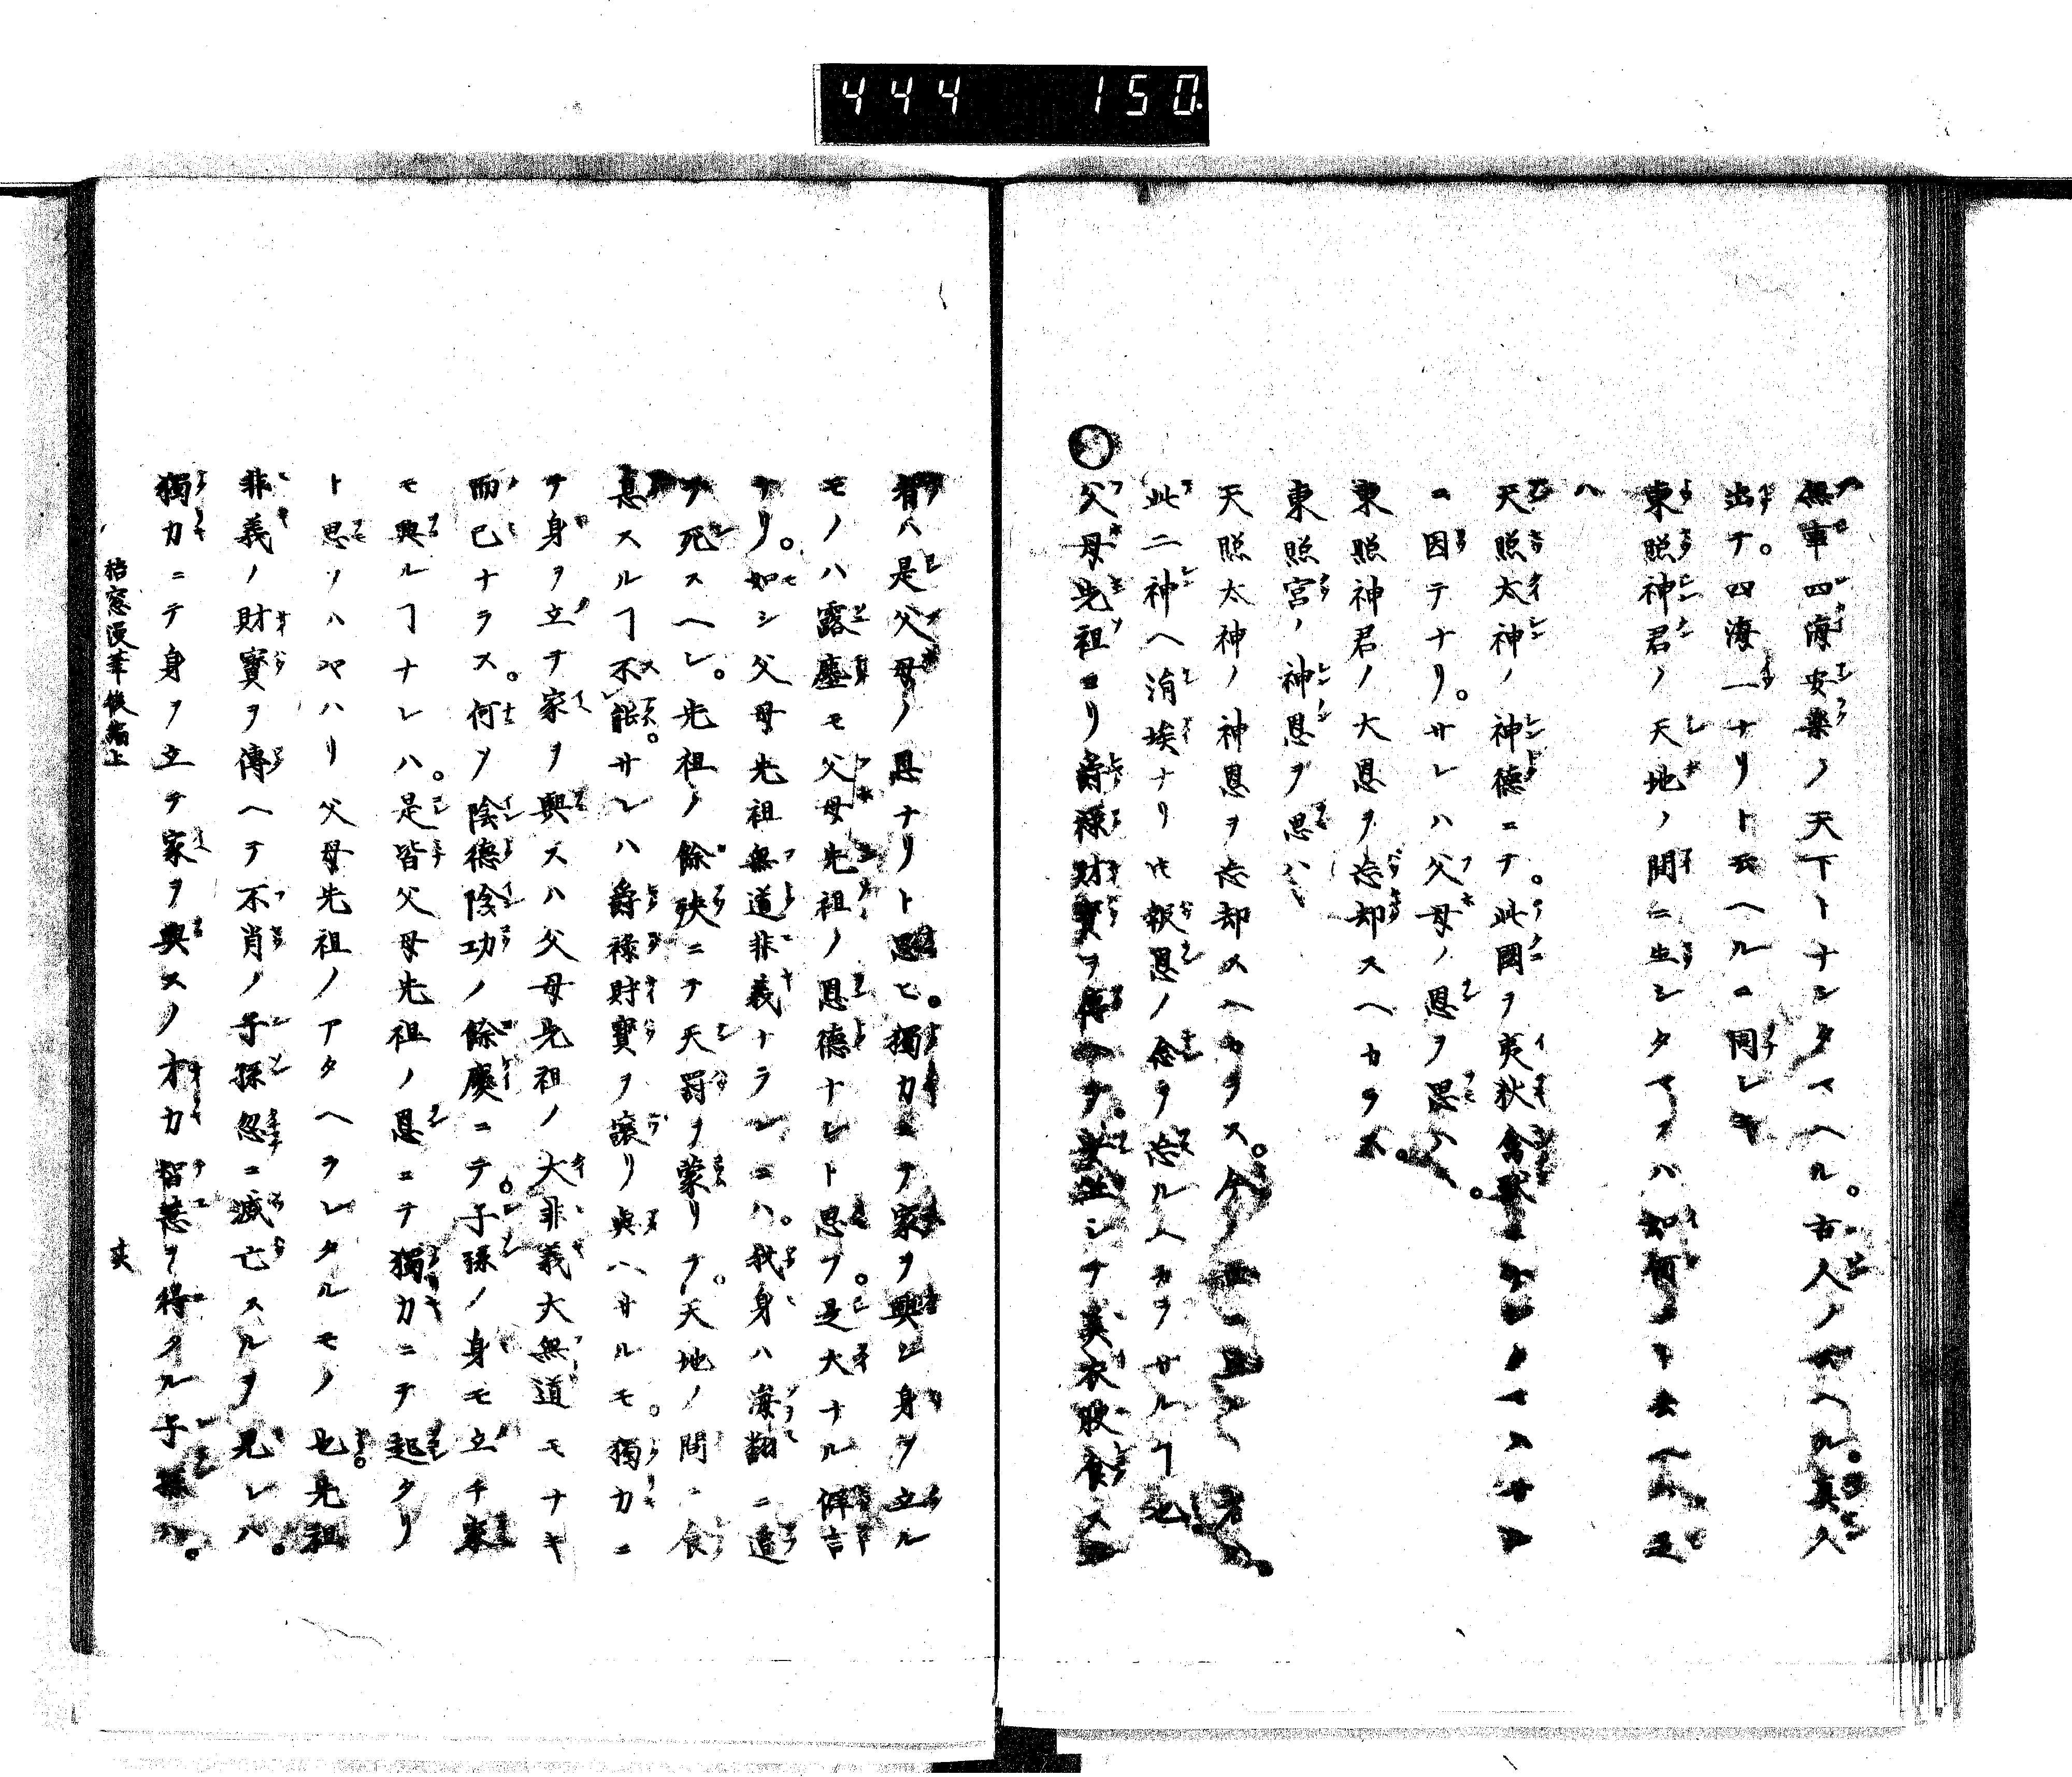 444 150
無事四海安樂ノ天下トナシタマヘル。古人ノ云ヘル。真人
出テ。四海一ナリト云ヘルニ同シ
東照神君ノ天地ノ間ニ生シタマフハ如何
ハ
天照太神ノ神徳ニテ。此國ヲ夷狄禽獸
ニ因テナリ。サレハ父母ノ恩ヲ思ハ。
東照神君ノ大恩ヲ忘却スヘカラス。
東照宮ノ神恩ヲ思ハヽ
天照太神ノ神恩ヲ忘却スヘカラス。今ノ世ニ
此二神ヘ涓埃ナリ𪜈報恩ノ念ヲ忘ル人カヲサルヿ也
父母先祖ヨリ爵禄財寶ヲ傳ヘテ。安坐シテ美衣服食ス
者ハ是父母ノ恩ナリト思ヒ。獨力ニテ家ヲ興シ身ヲ立ル
モノハ露塵モ父母先祖ノ恩徳ナシト思フ。是大ナル僻言
ナリ。如シ父母先祖無道非義ナラシニハ。我身ハ海翻ニ遭
テ死スヘレ。先祖ノ餘殃ニテ天罰ヲ蒙リテ。天地ノ間ニ食
息スルヿ不能。サレハ爵禄財寶ヲ譲リ與ハサルモ。獨力ニ
テ身ヲ立テ家ヲ興スハ父母先祖ノ大非義大無道モナキ
而已ナラス。何ソ陰德陰功ノ餘慶ニテ。子孫ノ身モ立チ家
モ興ルヿナレハ。是皆父母先祖ノ恩ニテ獨力ニテ起タリ
ト思ソハヤハリ父母先祖ノアタヘラレタルモノ也。先祖
非義ノ財寶ヲ傳ヘテ不肖ノ子孫忽ニ滅亡スルヲ見レハ。
獨力ニテ身ヲ立テ家ヲ興スノ才力智慧ヲ得タル子孫ハ。
梧窓漫筆後編上